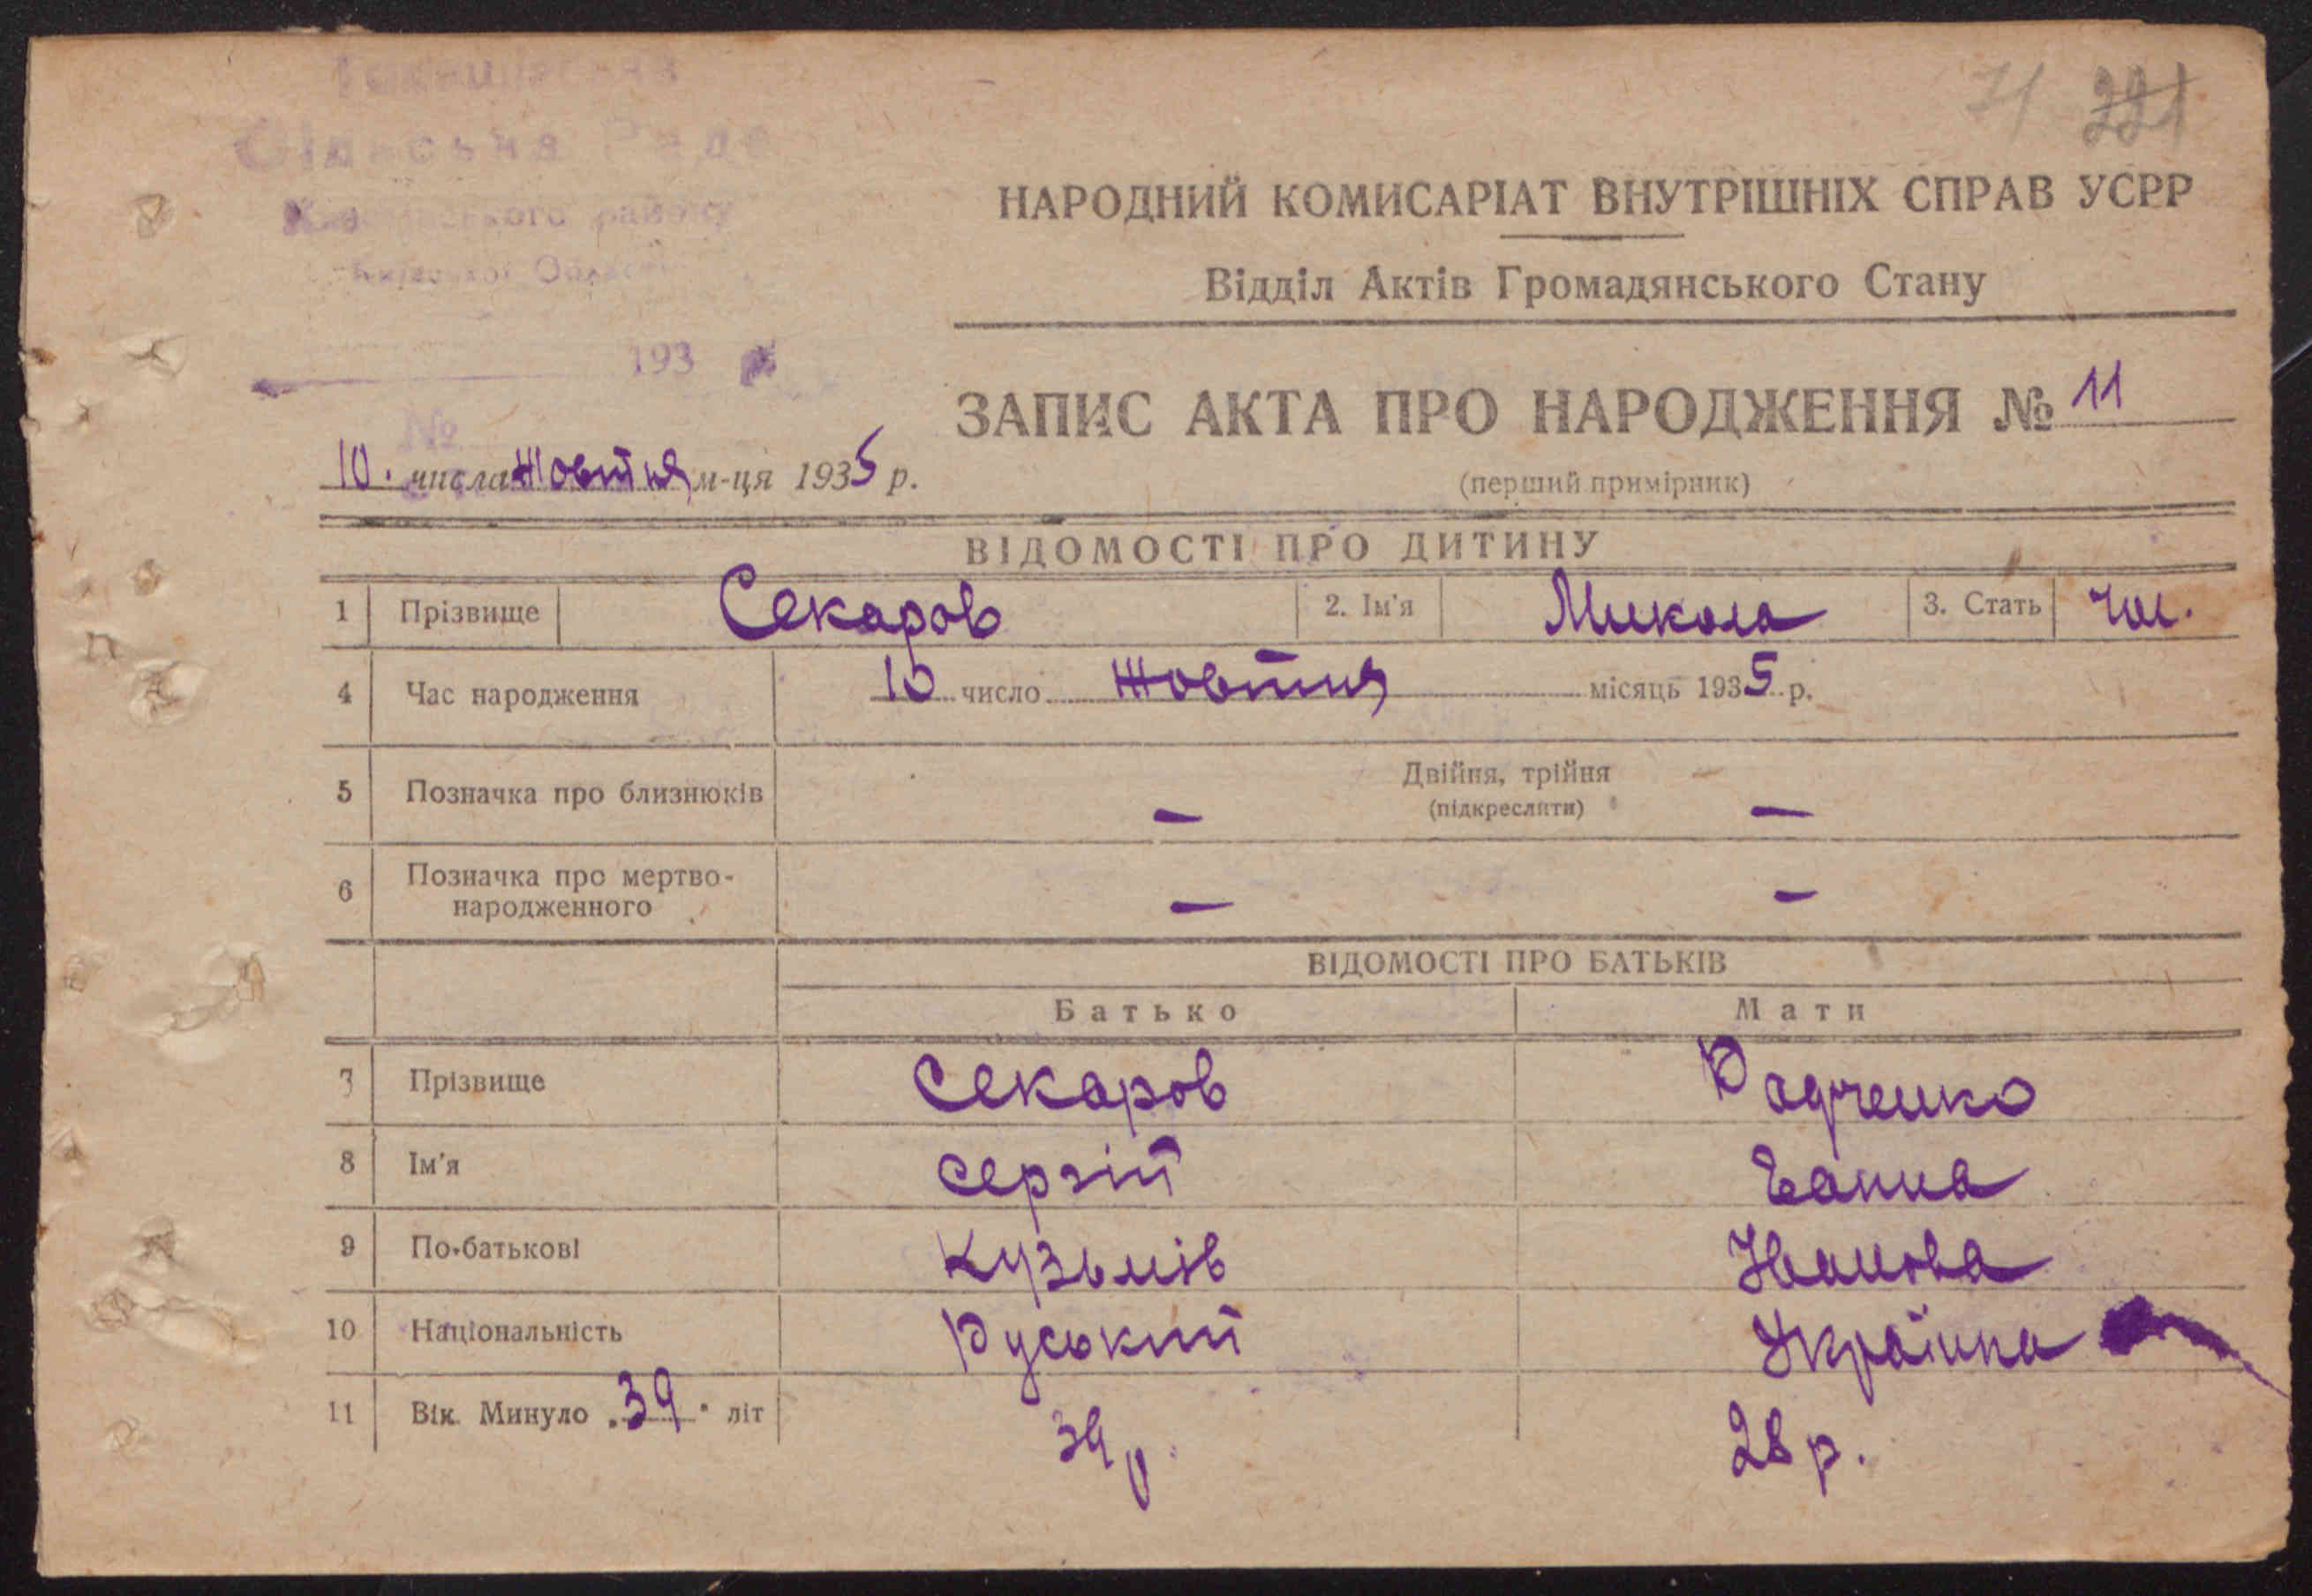 Сільська Рада
району
Області
71 221
НАРОДНИЙ КОМИСАРІАТ ВНУТРІШНІХ СПРАВ УСРР
Відділ Актів Громадянського Стану
193
№
ЗАПИС АКТА ПРО НАРОДЖЕННЯ № 11
10. числа Жовтня м-ця 1935 р.
(перший примірник)
ВІДОМОСТІ ПРО ДИТИНУ
1 Прізвище Секаров 2. Ім'я Микола 3. Стать чол.
4 Час народження 10 число Жовтня місяць 1935 р.
5 Позначка про близнюків — Двійня, трійня —
(підкреслити)
6 Позначка про мертво-
народженного — —
ВІДОМОСТІ ПРО БАТЬКІВ
Батько Мати
7 Прізвище Секаров Радченко
8 Ім'я Сергій Ганна
9 По-батькові Кузьмів Іванова
10 Національність Руський Українка
11 Вік. Минуло „39" літ 39 р. 28 р.